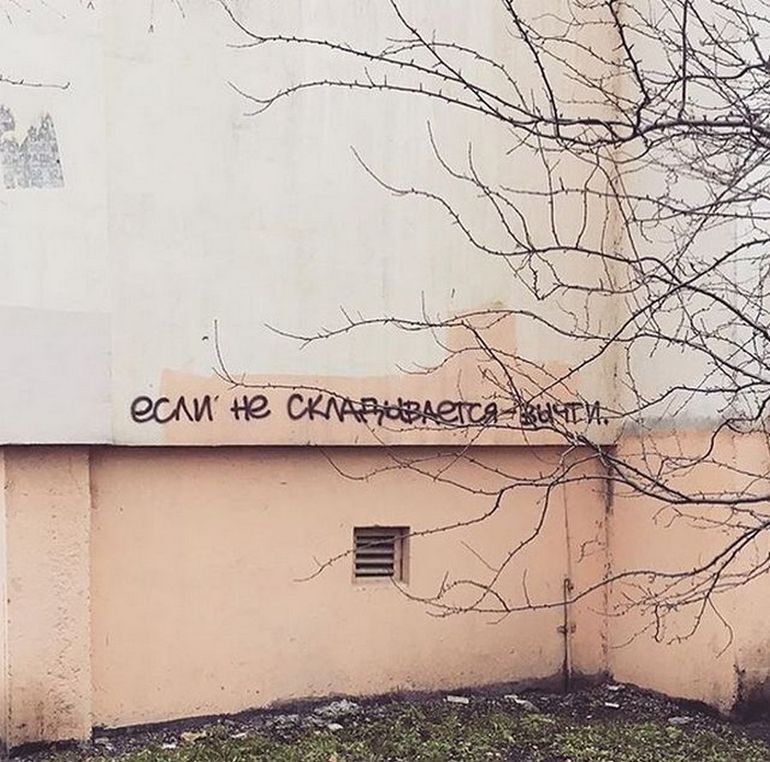 если не складывается - вычти.